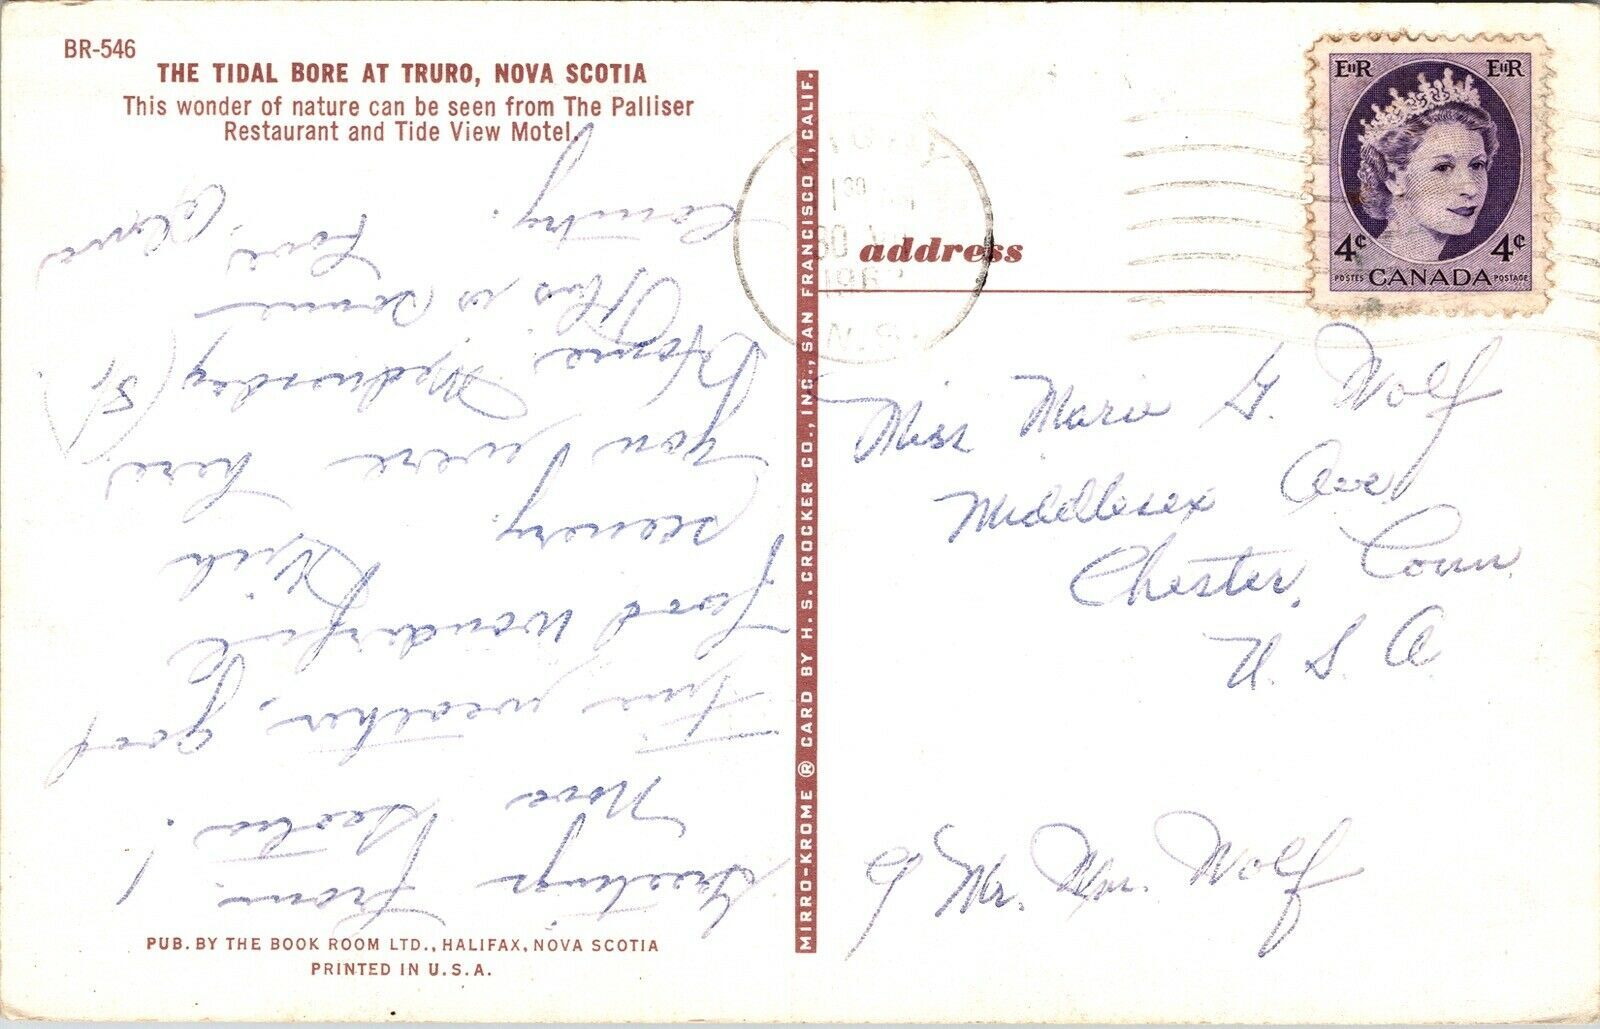 BR-546
THE TIDAL BORE AT TRURO, NOVA SCOTIA
This wonder of nature can be seen from The Palliser
Restaurant and Tide View Motel.
Greetings from
Nova Scotia!
Fine weather, good
food wonderful
scenery. Wish
you were here.
Home Wednesday
This is some
country.
Love,
PUB. BY THE BOOK ROOM LTD., HALIFAX, NOVA SCOTIA
PRINTED IN U.S.A.
MIRRO-KROME ® CARD BY H. S. CROCKER CO., INC., SAN FRANCISCO 1, CALIF.
address
N.S.
EIIR EIIR
4c 4c
POSTES CANADA POSTAGE
Miss Marie G. Wolf
Middlesex Ave
Chester, Conn.
U. S. A
c/o Mr. Wm. Wolf